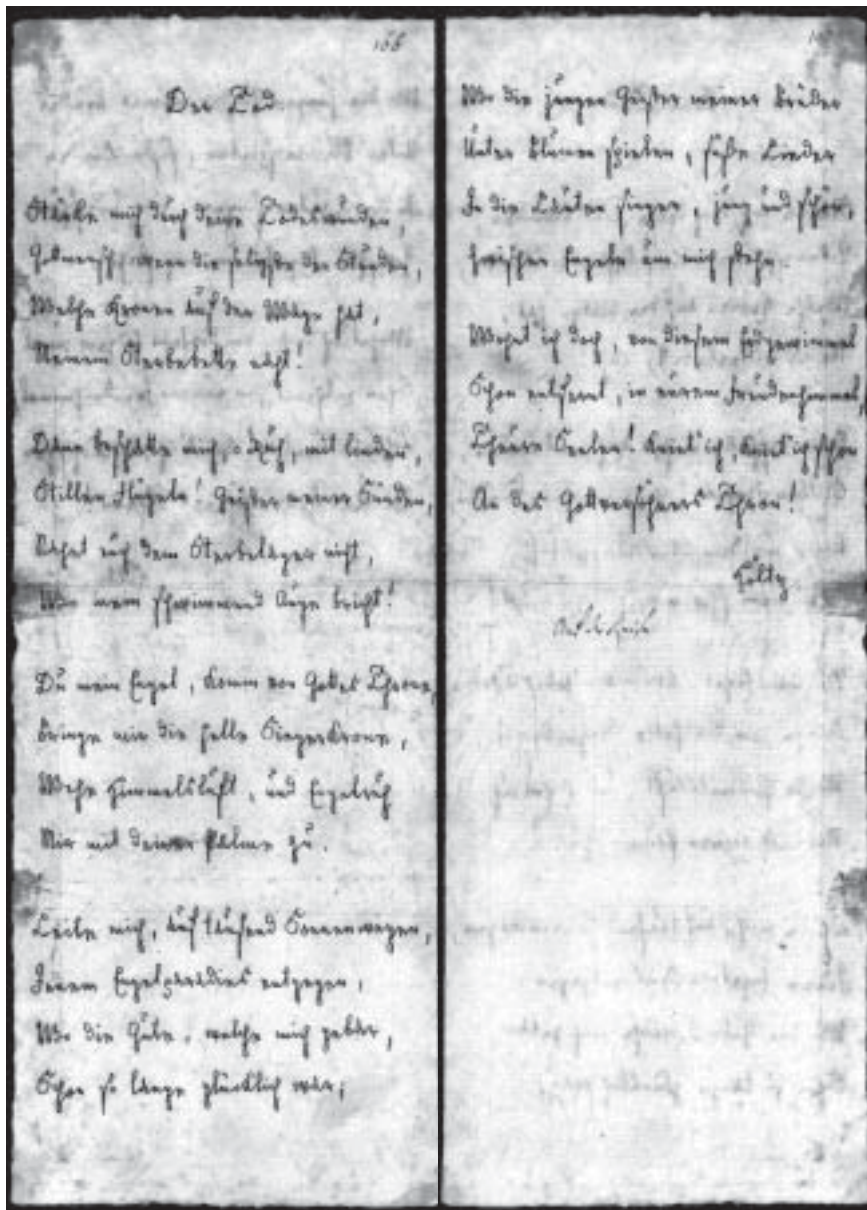 166
Der Tod
Stärke mich durch deine Todeswunden,
Gottmensch, wenn die seligste der Stunden,
Welche Kronen auf der Wage hat,
Meinem Sterbebette naht!
Dann beschatte mich, o Ruh, mit linden,
Stillen Flügeln! Geister meiner Sünden,
Nahet euch dem Sterbelager nicht,
Wo mein schwimmend Auge bricht!
Du mein Engel, komm von Gottes Throne,
Bringe mir die helle Siegerkrone,
Wehe Himmelsluft, und Engelruh
Mir mit deiner Palme zu.
Leite mich, auf tausend Sonnenwegen,
Jenem Engelparadies entgegen,
Wo die Gute, welche mich gebar,
Schon so lange glücklich war;
Wo die jungen Geister meiner Brüder
Unter Blumen spielen, süße Lieder
In die Lauten singen, jung und schön,
Zwischen Engeln um mich stehn.
Wohnt' ich doch, von diesem Erdgewimmel
Schon entfernt, in eurem Freudenhimmel,
Theure Seelen! Kniet' ich, kniet' ich schon
An des Gottversöhners Thron!
Hölty.